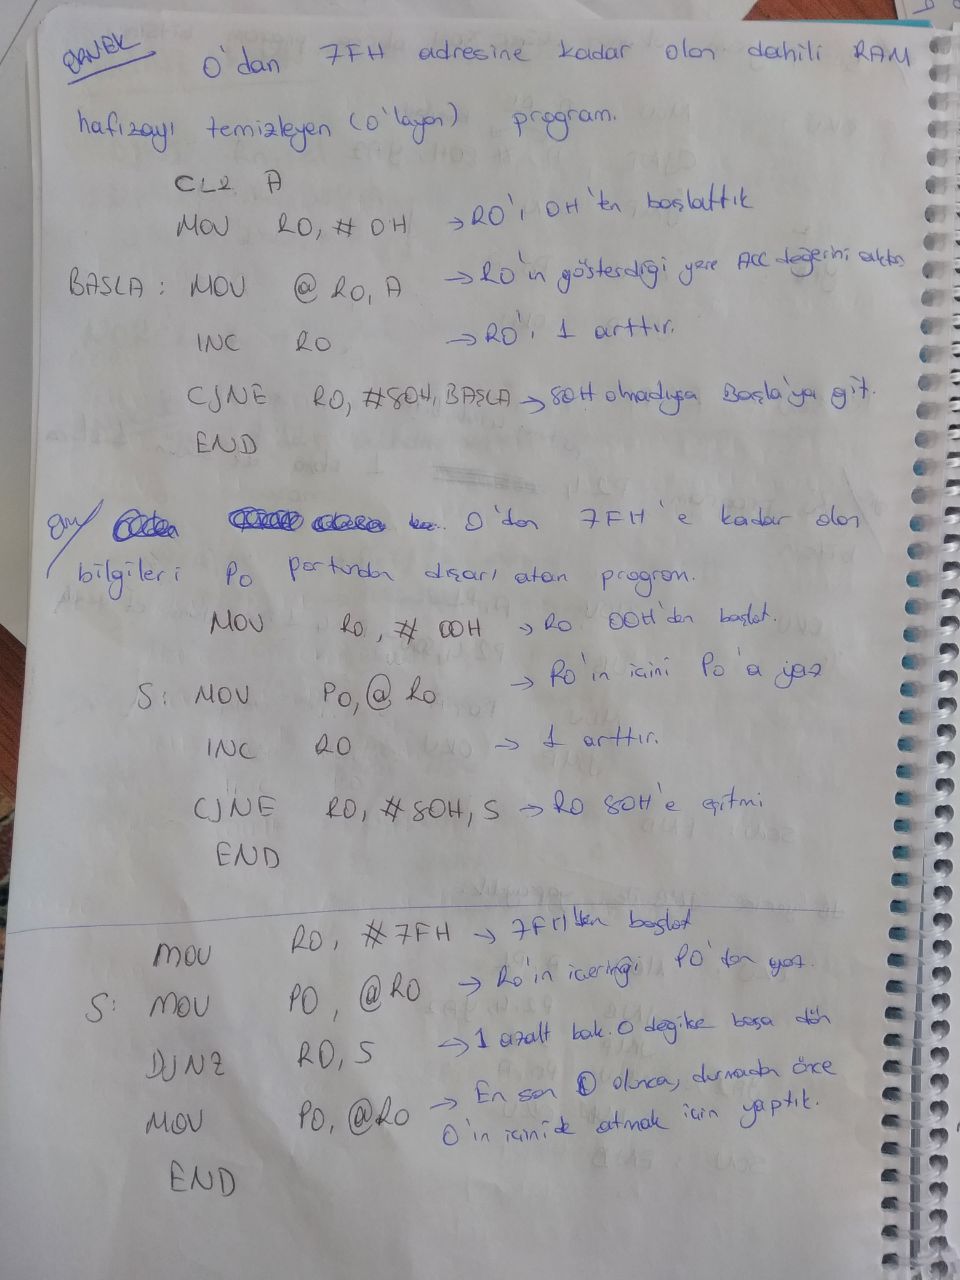 ÖRNEK 0'dan 7FH adresine kadar olan dahili RAM
hafızayı temizleyen (0'layan) program.
CLR A
MOV R0, # 0H → R0'ı 0H'ten başlattık
BASLA: MOV @ R0, A → R0'ın gösterdiği yere ACC değerini aktar
INC R0 → R0'ı 1 arttır.
CJNE R0, #80H, BASLA → 80H olmadıysa Başla'ya git.
END
Örn/ 0'dan 7FH'e kadar olan
bilgileri P0 portundan dışarı atan program.
MOV R0, # 00H → R0 00H'den başlat.
S: MOV P0, @ R0 → R0'ın içini P0'a yaz
INC R0 → 1 arttır.
CJNE R0, #80H, S → R0 80H'e gitmi
END
MOV R0, #7FH → 7FH'ten başlat
S: MOV P0, @R0 → R0'ın içeriği P0'dan yaz.
DJNZ R0, S → 1 azalt bak. 0 değilse başa dön
MOV P0, @R0 → En son 0 olunca, durmadan önce
0'ın içini de atmak için yaptık.
END